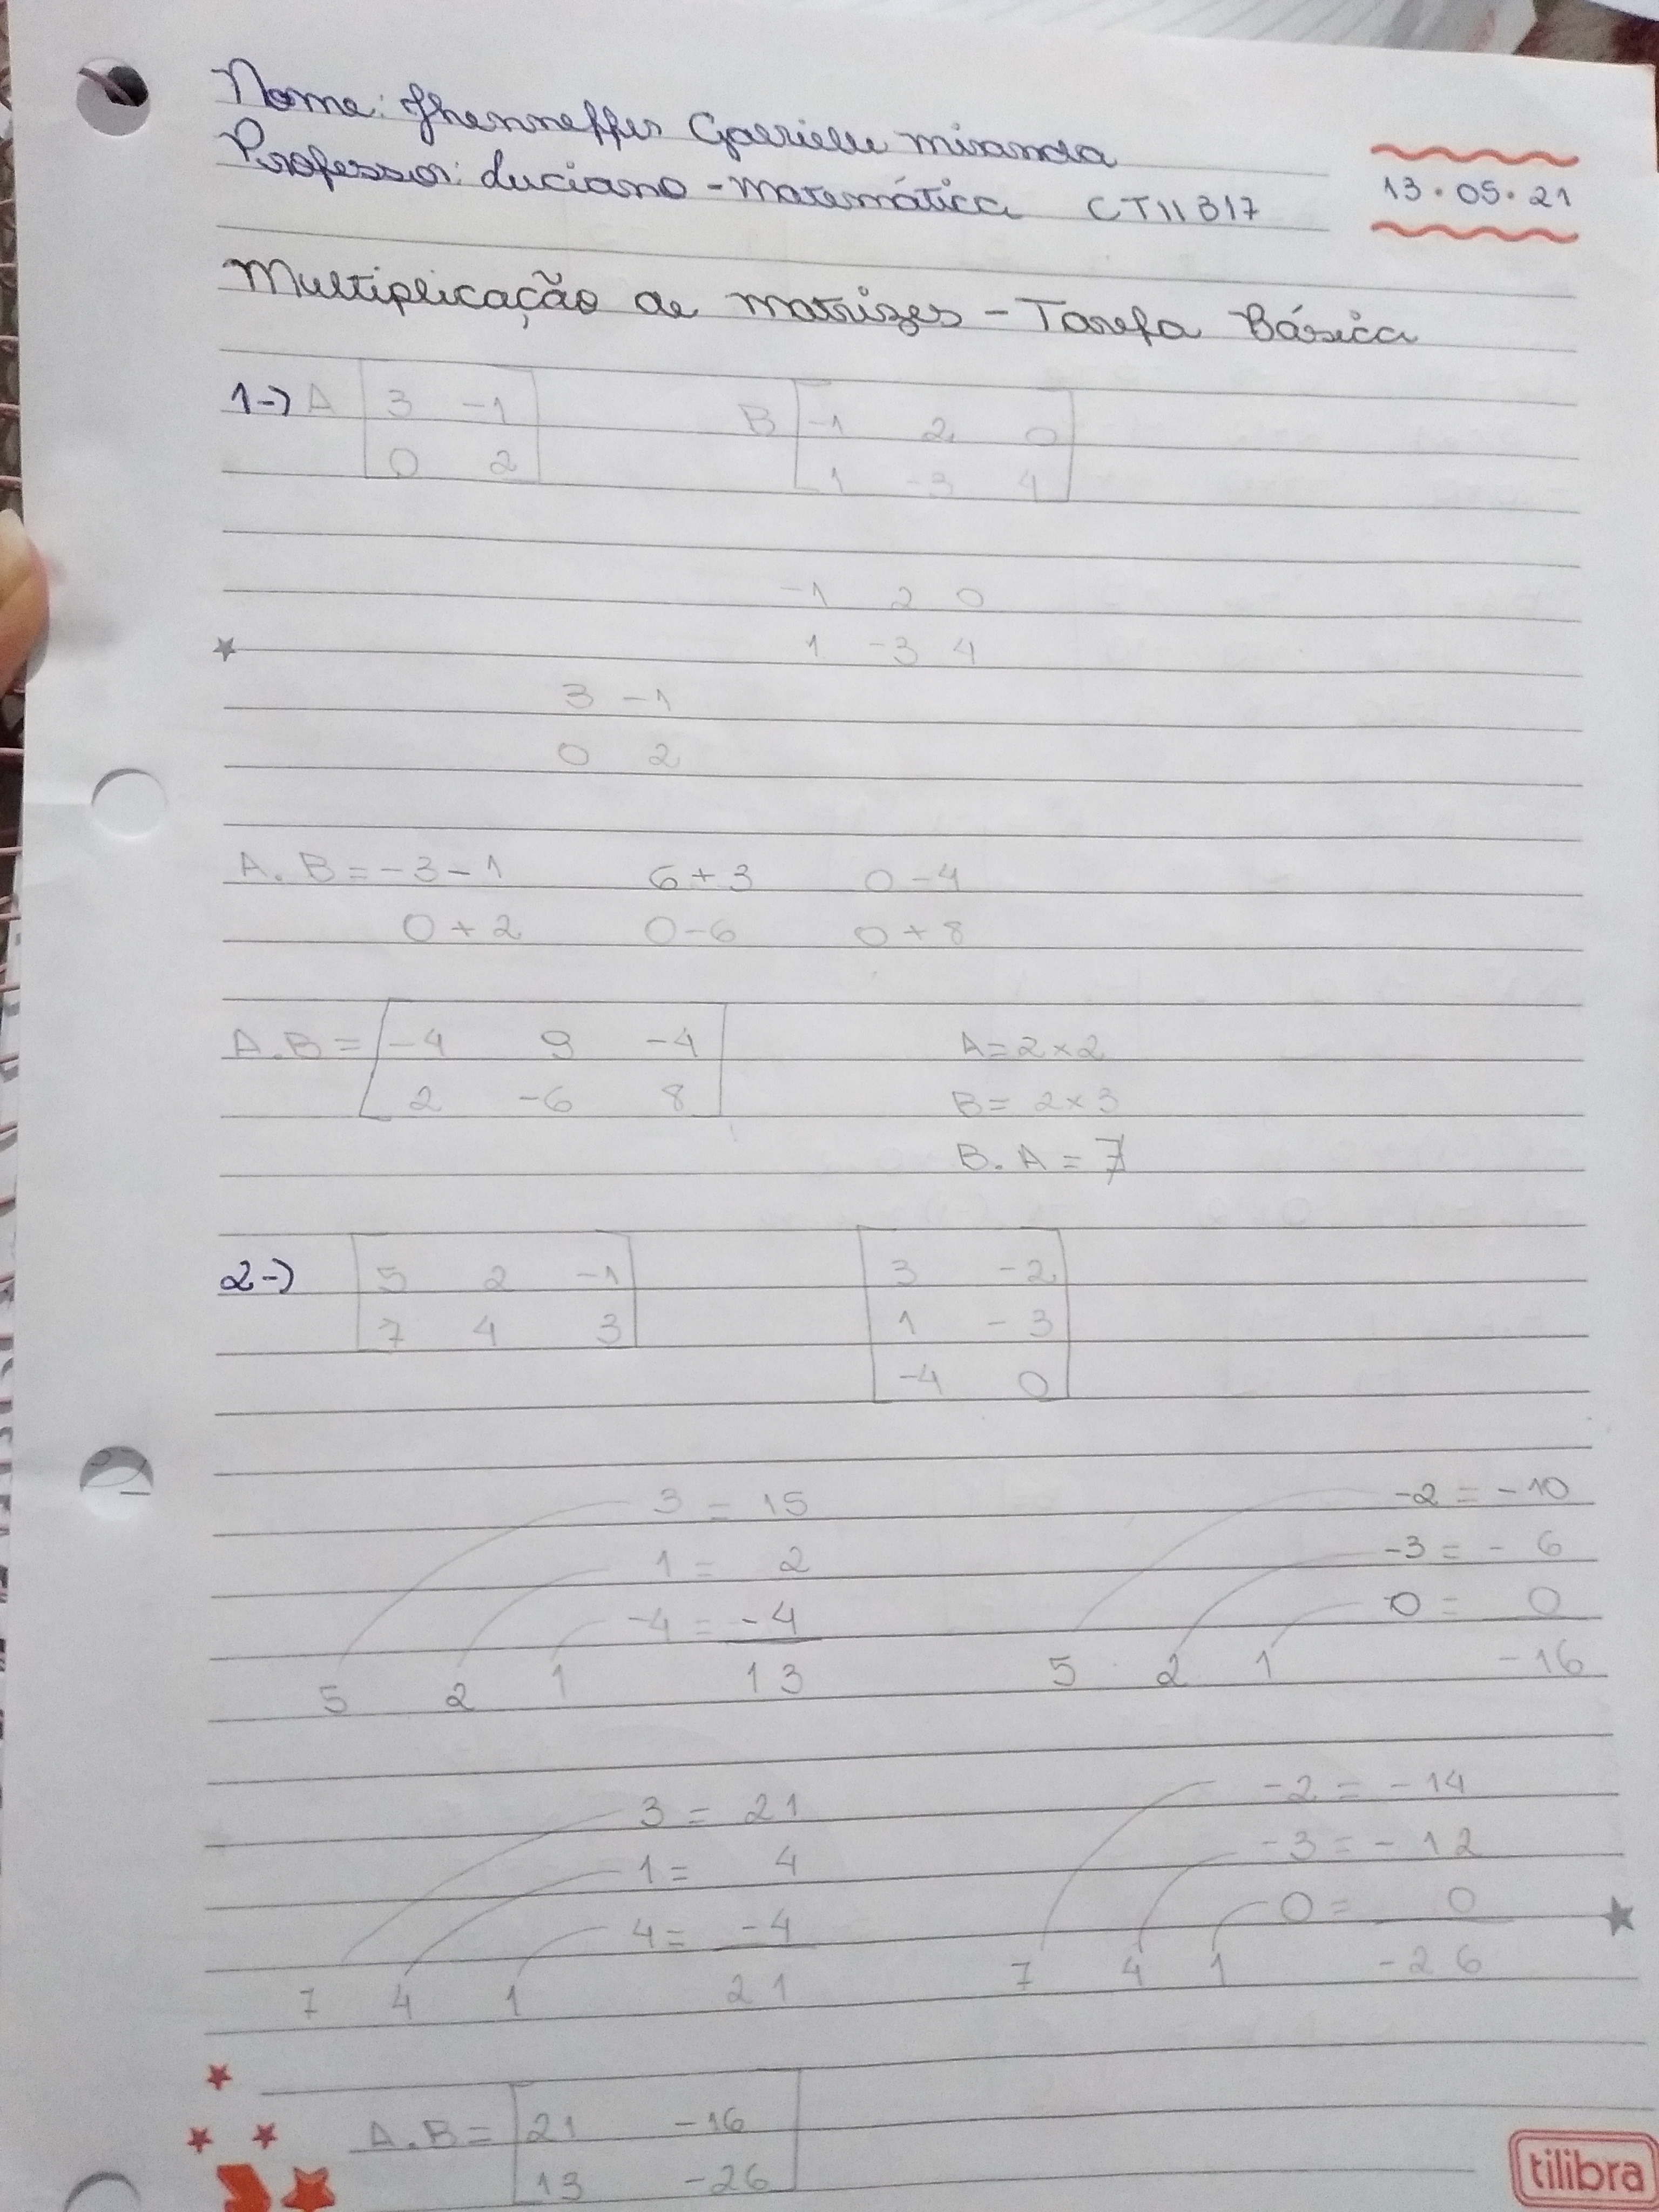 Nome: Jhenneffer Gabrielle Miranda
Professor: Luciano - Matemática CTII 317
13.05.21
Multiplicação de matrizes - Tarefa Básica
1-> A 3 -1 B -1 2 0
0 2 1 -3 4
-1 2 0
1 -3 4
3 -1
0 2
A.B = -3-1 6+3 0-4
0+2 0-6 0+8
A.B = -4 9 -4 A=2x2
2 -6 8 B= 2x3
B.A =
2-> 5 2 -1 3 -2
7 4 3 1 -3
-4 0
3 = 15 -2 = -10
1 = 2 -3 = - 6
-4 = -4 0 = 0
5 2 1 13 5 2 1 -16
3 = 21 -2 = -14
1 = 4 -3 = - 12
4 = -4 0 = 0
7 4 1 21 7 4 1 -26
A.B = 21 -16
13 -26
tilibra